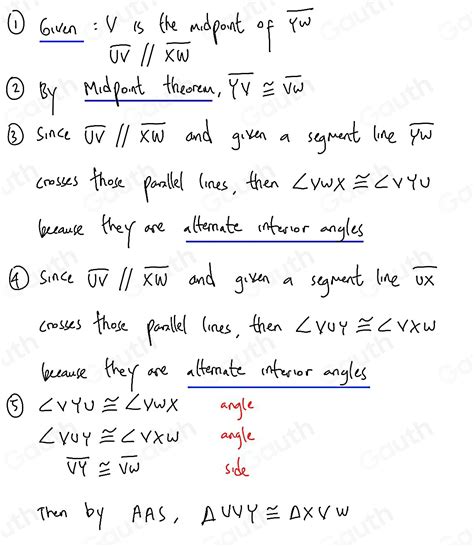 ① Given : V is the midpoint of YW
UV // XW
② By Midpoint theorem, YV ≅ VW
③ Since UV // XW and given a segment line YW
crosses those parallel lines, then ∠VWX ≅ ∠VYU
because they are alternate interior angles
④ Since UV // XW and given a segment line UX
crosses those parallel lines, then ∠VUY ≅ ∠VXW
because they are alternate interior angles
⑤ ∠VYU ≅ ∠VWX angle
∠VUY ≅ ∠VXW angle
VY ≅ VW side
Then by AAS, ΔUVY ≅ ΔXVW